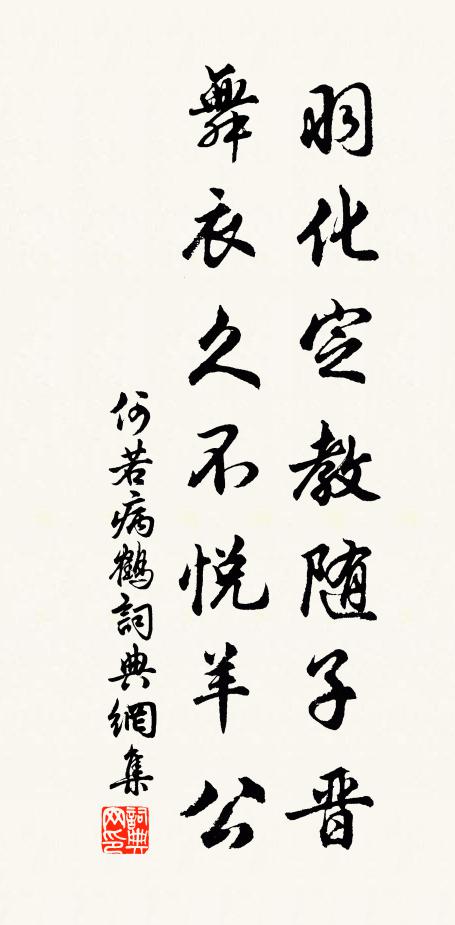 羽化定教随子晋
舞衣久不悦羊公
何若病鶴詞典網集
詞典网印